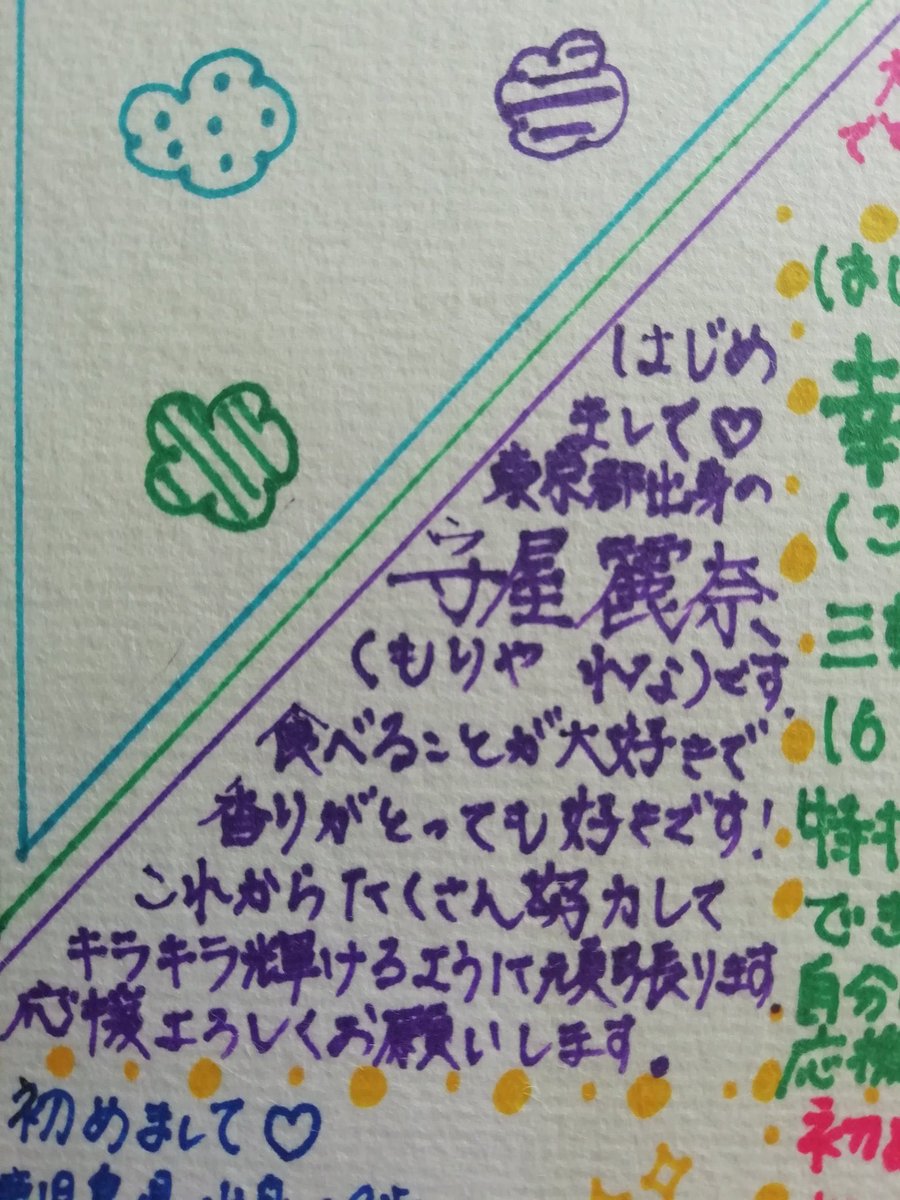 はじめ
まして♡
東京都出身の
守屋麗奈
(もりや れな)です.
食べることが大好きで
香りがとっても好きです!
これからたくさん努力して
キラキラ輝けるように頑張ります.
応援よろしくお願いします.
はじ
幸
(こ
三
(6
特
でき
自分
応援
初めまして♡
鹿児島県出身
初め